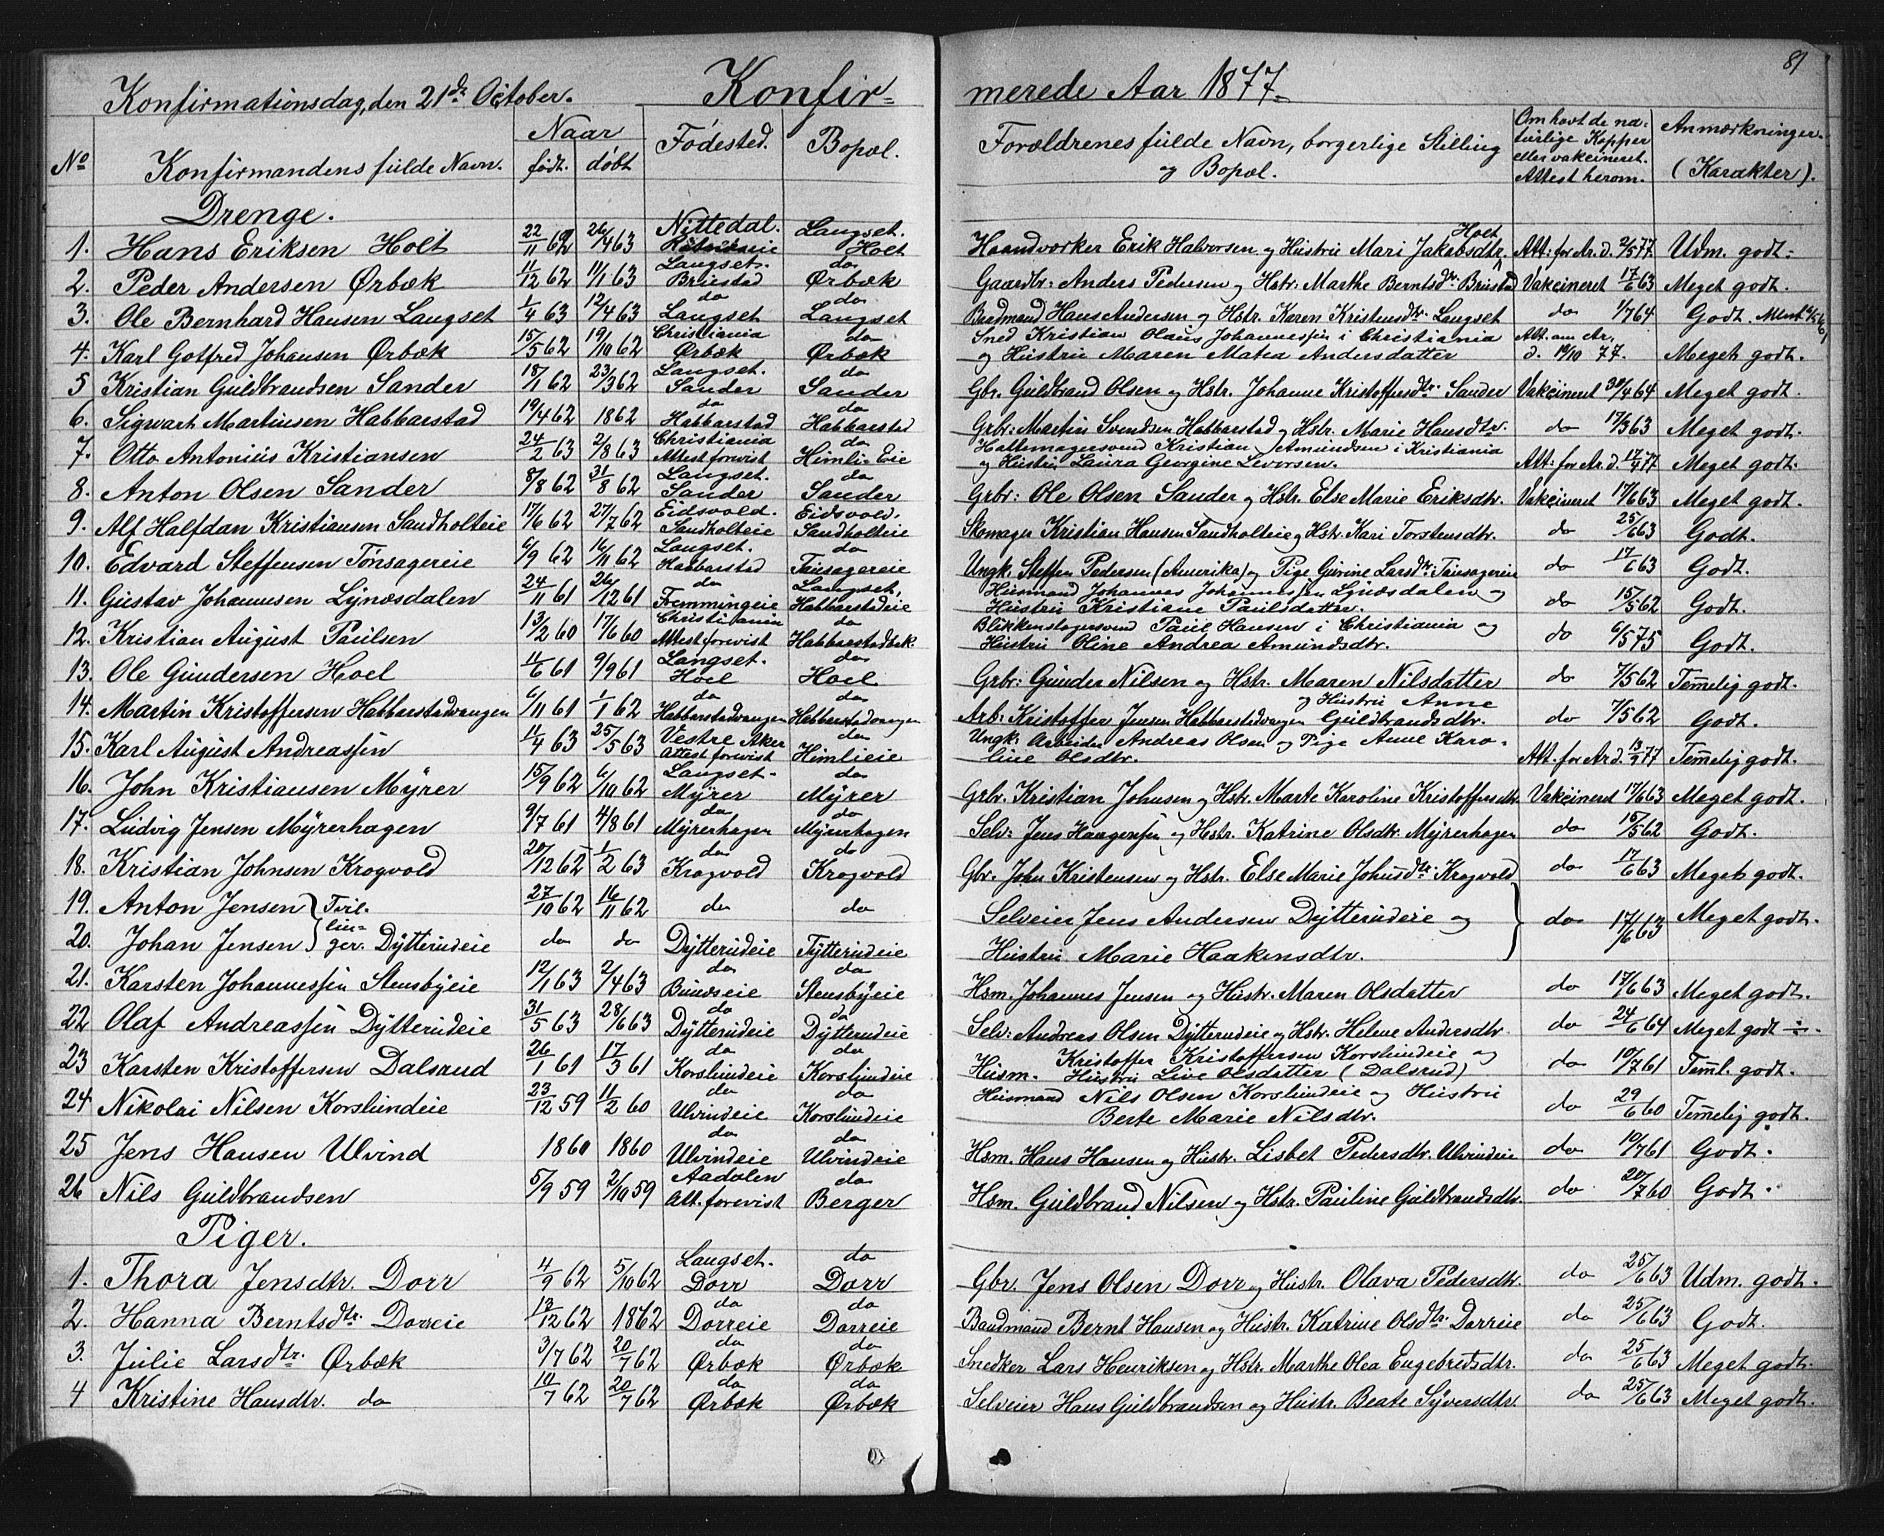 81
Konfirmationsdag, den 21de October. Konfir= merede Aar 1877.
No Konfirmandens fulde Navn. Naar født. døbt Fødested. Bopæl. Forældrenes fulde Navn, borgerlige Stilling og Bopæl. Om havt de naturlige Kopper eller vakcineret. Attest herom. Anmærkninger. (Karakter).
Drenge.
1. Hans Eriksen Holt 22/11 62 26/4 63 Nittedal. Langset. Holt Haandværker Erik Halvorsen og Hustru Mari Jakobsdtr. Holt Att: for Ar. d. 2/5 77 Udm. godt.
2. Peder Andersen Ørbæk 11/12 62 11/1 63 Langset. Brustad do Ørbæk Gaardbr: Anders Pedersen og Hstr: Marthe Berntsdtr. Brustad Vakcineret 17/6 63 Meget godt.
3. Ole Bernhard Hansen Langset 1/4 63 12/4 63 do Langset do Langset Baadmand Hans Andersen og Hstr. Karen Kristensdtr. Langset do 1/7 64 Godt.
4. Karl Gotfred Johansen Ørbæk 15/5 62 19/10 62 Christiania Ørbæk do Ørbæk Sned Kristian Olaus Johannessen i Christiania og Hustru Maren Matea Andersdatter Att. om Ar. d. 19/10 77. Meget godt.
5 Kristian Guldbrandsen Sander 18/1 62 23/3 62 Langset. Sander do Sander Gbr. Guldbrand Olsen og Hstr. Johanne Kristoffersdtr. Sander Vakcineret 30/4 64 Meget godt.
6. Sigwart Martinsen Habbarstad 19/4 62 1862 do Habbarstad do Habbarstad Grbr: Martin Svendsen Habbarstad og Hstr. Marie Hansdtr. do 17/3 63 Meget godt.
7. Otto Antonius Kristiansen 24/2 63 2/8 63 Christiania Attest forevist do Himli Eie Hattemagersvend Kristian Amundsen i Kristiania og Hustru Laura Georgine Levorsen. Att: for Ar. d. 17/4 77 Meget godt.
8. Anton Olsen Sander 8/8 62 31/8 62 Langset. Sander do Sander Grbr: Ole Olsen Sander og Hstr. Else Marie Eriksdtr. Vakcineret 17/6 63 Meget godt.
9. Alf Halfdan Kristiansen Sandholteie 17/6 62 27/7 62 Eidsvold. Sandholteie Eidsvold. Sandholteie Skomager Kristian Hansen Sandholteie og Hstr. Kari Torstensdtr. do 25/6 63 Godt.
10. Edvard Steffensen Tønsagereie 6/9 62 16/11 62 Langset. Habbarstad do Tønsagereie Ungk: Steffen Pedersen (Amerika) og Pige Gurine Larsdtr. Tønsagereie do 17/6 63 Godt.
11. Gustav Johannesen Lynæsdalen 24/11 61 26/12 61 do Fremmingeie Langset. Habbarstadeie Husmand Johannes Johannessen Lynæsdalen og Hustru Kristiane Paulsdatter. do 15/5 62 Godt.
12. Kristian August Paulsen 13/2 60 17/6 60 Christiania Attest forevist do Habbarstadbak. Blikkenslagersvend Paul Hansen i Christiania og Hustru Oline Andrea Amundsdtr. do 6/5 75 Godt.
13. Ole Gundersen Hoel 11/6 61 9/9 61 Langset. Hoel do Hoel Grbr: Gunder Nilsen og Hstr. Maren Nilsdatter do 7/5 62 Temmelig godt.
14. Martin Kristoffersen Habbarstadvangen 6/11 61 1/1 62 do Habbarstadvangen do Habbarstadvangen Arb: Kristoffer Jensen Habbarstadvangen og Hustru Anne Guldbrandsdtr. do 7/5 62 Godt.
15. Karl August Andreassen 11/4 63 25/5 63 Vestre Aker Attest forevist do Himlieie Ungk: Arbeider Andreas Olsen og Pige Anne Karoline Olsdtr. Att. for Ar d. 13/2 77 Temmelig godt.
16. John Kristiansen Myrer 15/9 62 6/10 62 Langset. Myrer do Myrer Grbr. Kristian Johnsen og Hstr. Marte Karoline Kristoffersdtr. Vakcineret 17/6 63 Meget godt.
17. Ludvig Jensen Myrerhagen 9/7 61 4/8 61 do Myrerhagen do Myrerhagen Selv: Jens Haagensen og Hstr. Katrine Olsdtr. Myrerhagen do 15/5 62 Godt.
18. Kristian Johnsen Krogvold 20/12 62 1/2 63 do Krogvold do Krogvold Gbr. John Kristensen og Hstr. Else Marie Johnsdtr. Krogvold do 17/6 63 Meget godt.
19. Anton Jensen } Tvil- 27/10 62 16/11 62 do do Selveier Jens Andersen Dytterudeie og } do 17/6 63 Meget godt.
20. Johan Jensen } linger. Dytterudeie do do Dytterudeie Tytterudeie Hustru Marie Haakensdtr.
21. Karsten Johannessen Stensbyeie 12/1 63 2/4 63 do Bundseie do Stensbyeie Hsm. Johannes Jensen og Hustr. Maren Olsdatter do 17/6 63 Meget godt.
22 Olaf Andreassen Dytterudeie 31/5 63 28/6 63 do Dytterudeie do Dytterudeie Selv: Andreas Olsen Dytterudeie og Hstr. Helene Andersdtr. do 24/6 64 Meget godt
23 Karsten Kristoffersen Dalsrud 26/1 61 17/3 61 do Korslundeie do Korslundeie Husm. Kristoffer Kristoffersen Korslundeie og Hustru Live Olsdatter (Dalsrud) do 10/7 61 Teml. godt.
24 Nikolai Nilsen Korslundeie 23/12 59 11/2 60 do Ulvindeie do Korslundeie Husmand Nils Olsen Korslundeie og Hustru Berte Marie Nilsdtr. do 29/6 60 Temmelig godt.
25 Jens Hansen Ulvind 1860 1860 do Ulvindeie do Ulvindeie Hsm. Hans Hansen og Hustr. Lisbet Pedersdtr. Ulvindeie do 10/7 61 Godt.
26 Nils Guldbrandsen 5/9 59 2/10 59 Aadalen Att. forevist do Berger Hsm. Guldbrand Nilsen og Hstr. Pauline Guldbrandsdtr. do 20/7 60 Godt.
Piger.
1. Thora Jensdtr. Dorr 4/9 62 5/10 62 Langset. Dorr do Dorr Gbr. Jens Olsen Dorr og Hustr. Olava Pedersdtr. do 25/6 63 Udm. godt.
2. Hanna Berntsdtr. Dorreie 13/12 62 1862 do Dorreie do Dorreie Baadmand Bernt Hansen og Hustr. Katrine Olsdtr. Dorreie do 25/6 63 Godt.
3. Julie Larsdtr. Ørbæk 3/7 62 20/7 62 do Ørbæk do Ørbæk Snedker Lars Henriksen og Hstr. Marthe Olea Engebretsdtr. do 25/6 63 Meget godt.
4 Kristine Hansdtr. do 10/7 62 20/7 62 do Ørbæk do Ørbæk Selveier Hans Guldbrandsen og Hustr. Beate Syversdtr. do 25/6 63 Meget godt.